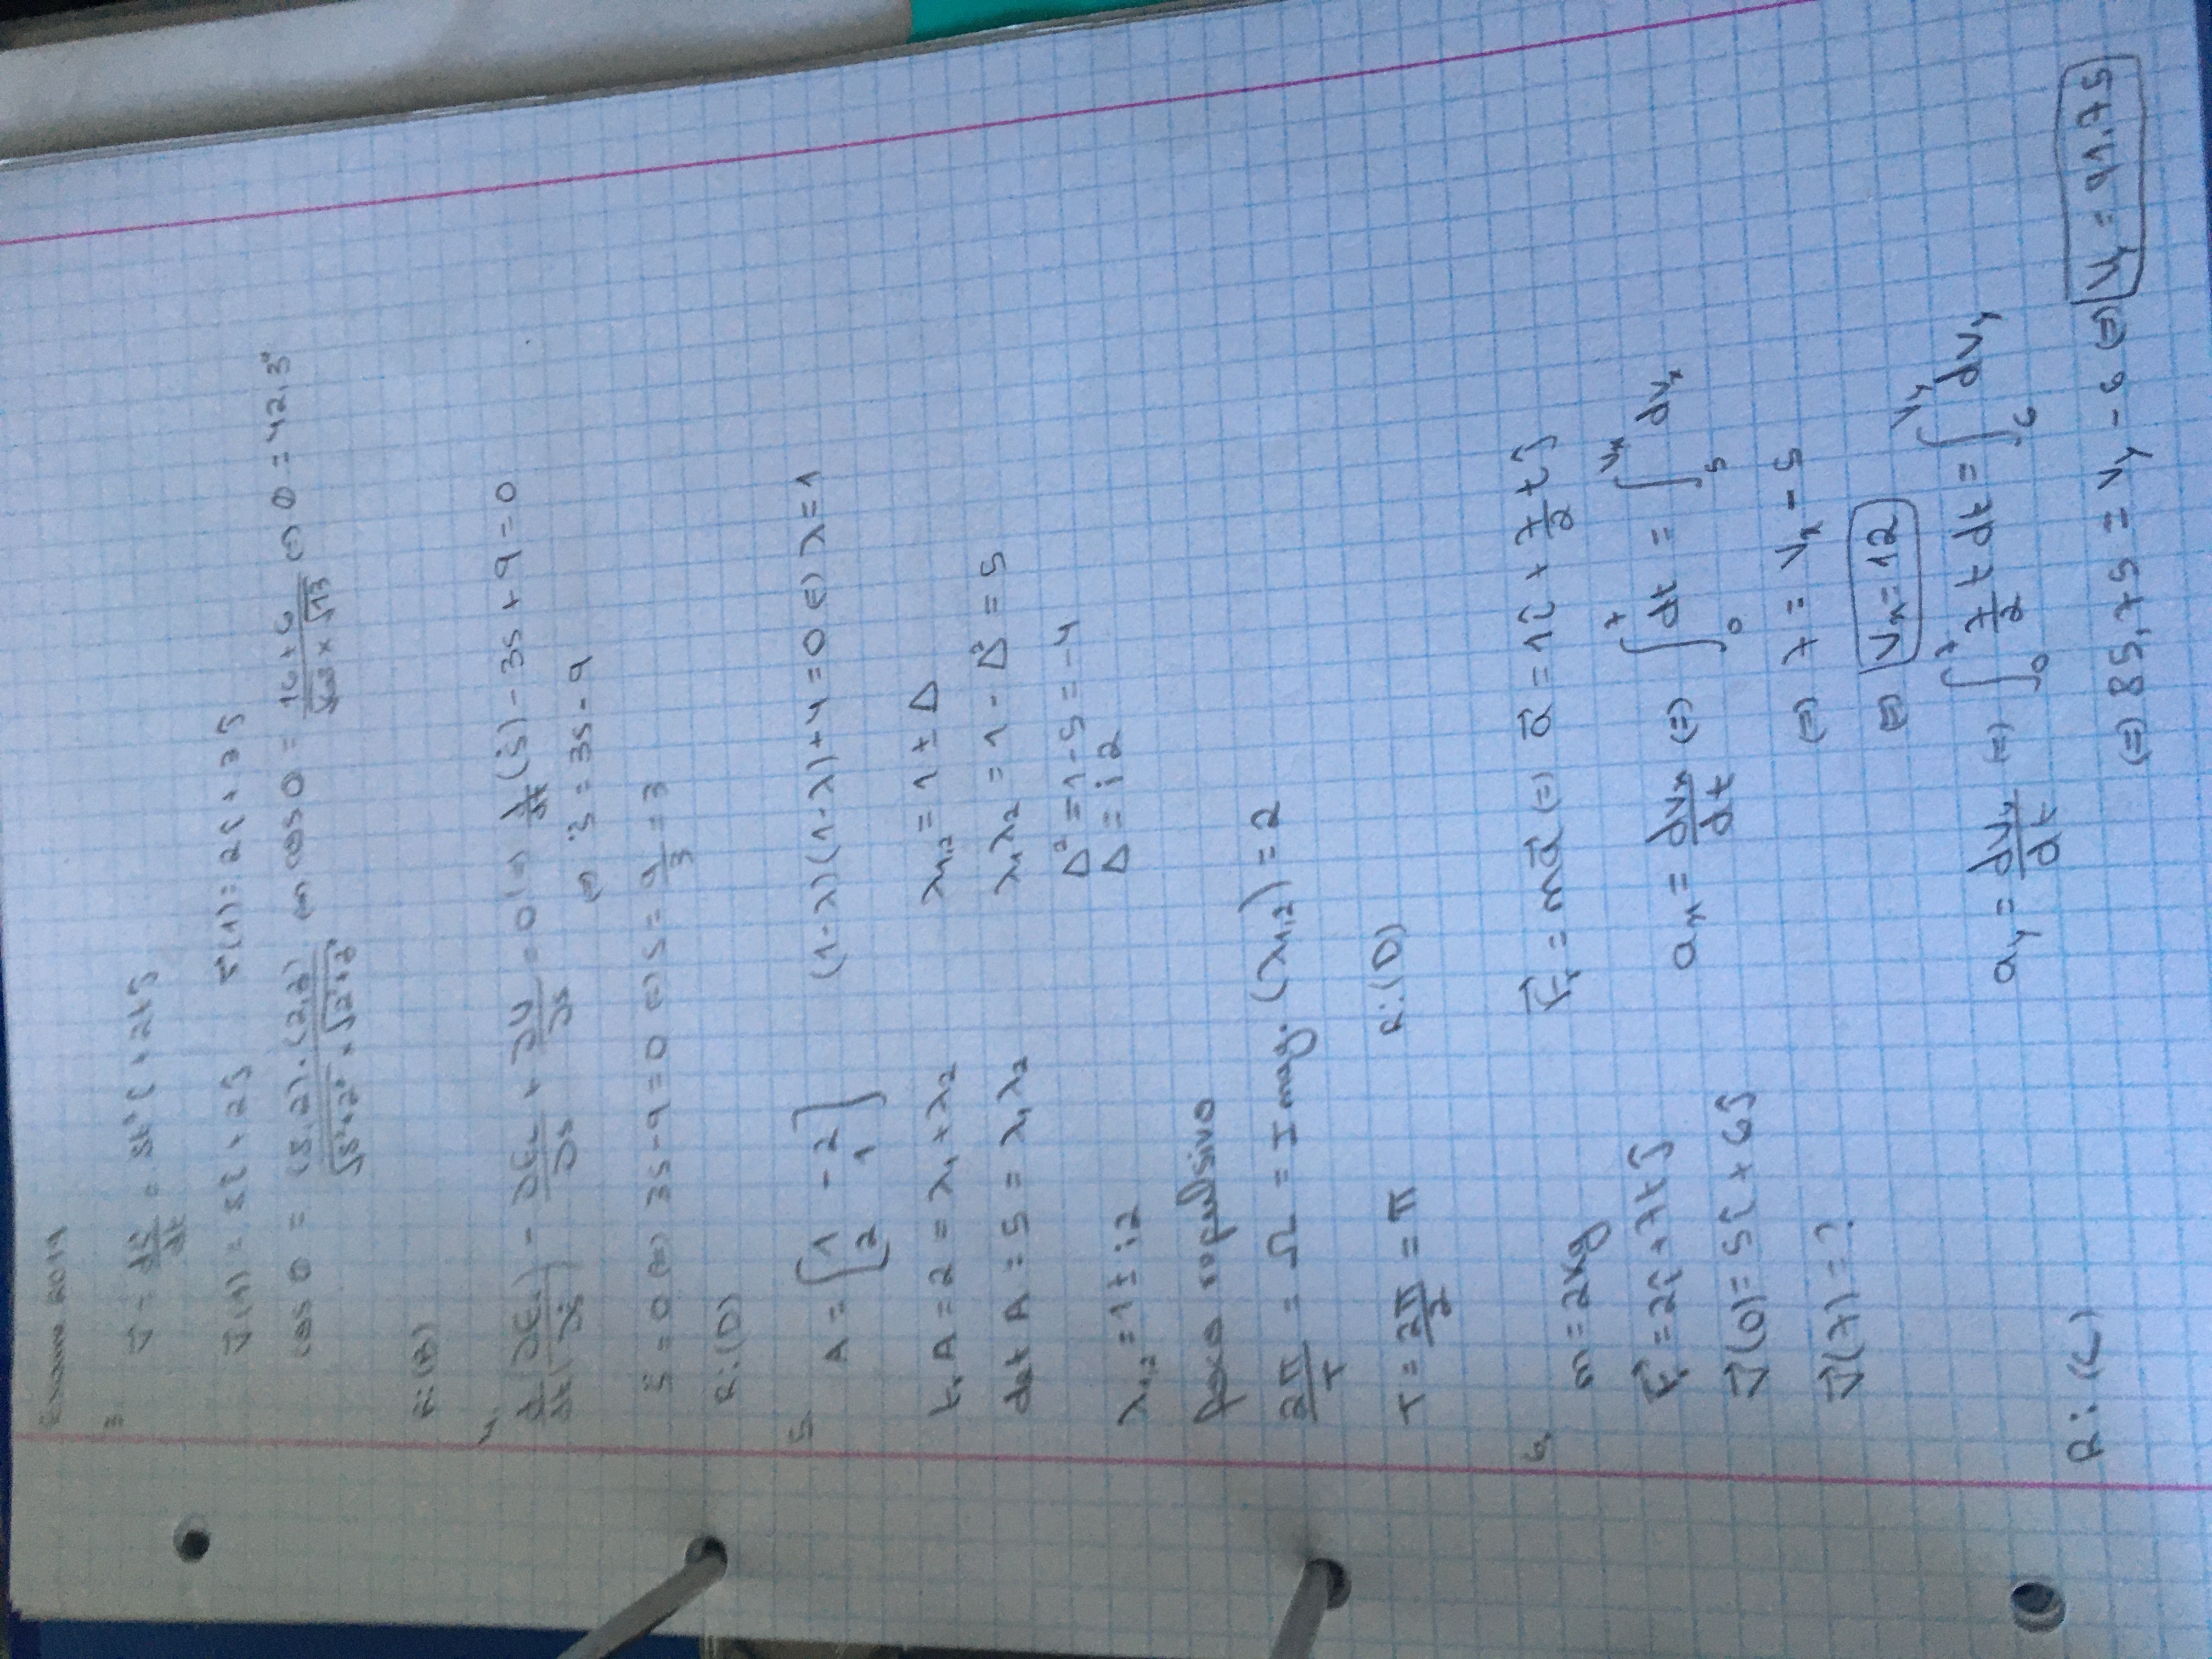 Exame 2019
3.
v⃗ = dr⃗/dt = 8t³ î + 2t ĵ
v⃗(1) = 8î + 2ĵ r⃗(1) = 2î + 3ĵ
cos θ = (8,2)·(2,3) / √8²+2² × √2²+3² ⇔ cos θ = 16+6 / √68 × √13 ⇔ θ = 42,3°
R: (B)
4.
d/dt (∂Ec/∂ṡ) - ∂Ec/∂s + ∂U/∂s = 0 ⇔ d/dt (ṡ) - 3s + 9 = 0
⇔ s̈ = 3s - 9
s̈ = 0 ⇔ 3s - 9 = 0 ⇔ s = 9/3 = 3
R: (D)
5.
A = [1 -2
2 1] (1-λ)(1-λ)+4 = 0 ⇔ λ = 1
tr A = 2 = λ₁ + λ₂ λ₁,₂ = 1 ± Δ
det A = 5 = λ₁ λ₂ λ₁λ₂ = 1 - Δ² = 5
Δ² = 1 - 5 = -4
λ₁,₂ = 1 ± i2 Δ = i2
foco repulsivo
2π/T = Ω = Imag. (λ₁,₂) = 2
T = 2π/2 = π R: (D)
6.
m = 2kg F⃗r = ma⃗ ⇔ a⃗ = 1î + 7/2 t ĵ
F⃗r = 2î + 7t ĵ ax = dvx/dt ⇔ ∫₀⁷ dt = ∫₅^vx dvx
v⃗(0) = 5î + 6ĵ
v⃗(7) = ? ⇔ 7 = vx - 5
⇔ vx = 12
ay = dvy/dt ⇔ ∫₀⁷ 7/2 t dt = ∫₆^vy dvy
R: (C) ⇔ 85,75 = vy - 6 ⇔ vy = 91,75